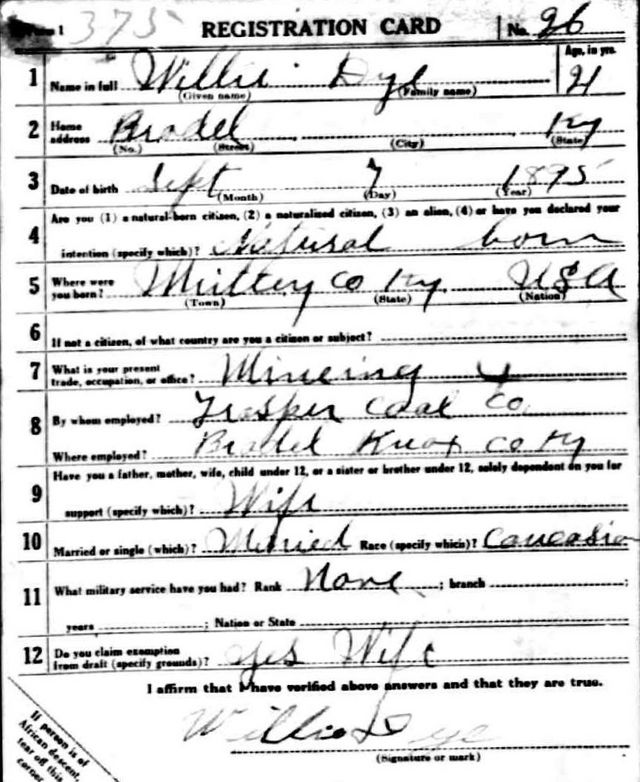 Form 1 375 REGISTRATION CARD No. 26
1 Name in full Willie Dye Age, in yrs. 21
(Given name) (Family name)
2 Home address Bradel Ky
(No.) (Street) (City) (State)
3 Date of birth Sept 7 1895
(Month) (Day) (Year)
Are you (1) a natural-born citizen, (2) a naturalized citizen, (3) an alien, (4) or have you declared your
4 intention (specify which)? Natural born
5 Where were you born? Whitley Co Ky USA
(Town) (State) (Nation)
6 If not a citizen, of what country are you a citizen or subject?
7 What is your present trade, occupation, or office? Mineing
8 By whom employed? Trosper Coal Co
Where employed? Bradel Knox Co Ky
9 Have you a father, mother, wife, child under 12, or a sister or brother under 12, solely dependent on you for
support (specify which)? Wife
10 Married or single (which)? Married Race (specify which)? Caucasian
11 What military service have you had? Rank None ; branch ;
years ; Nation or State
12 Do you claim exemption from draft (specify grounds)? Yes Wife
I affirm that I have verified above answers and that they are true.
Willie Dye
(Signature or mark)
If person is of
African descent,
tear off this
corner